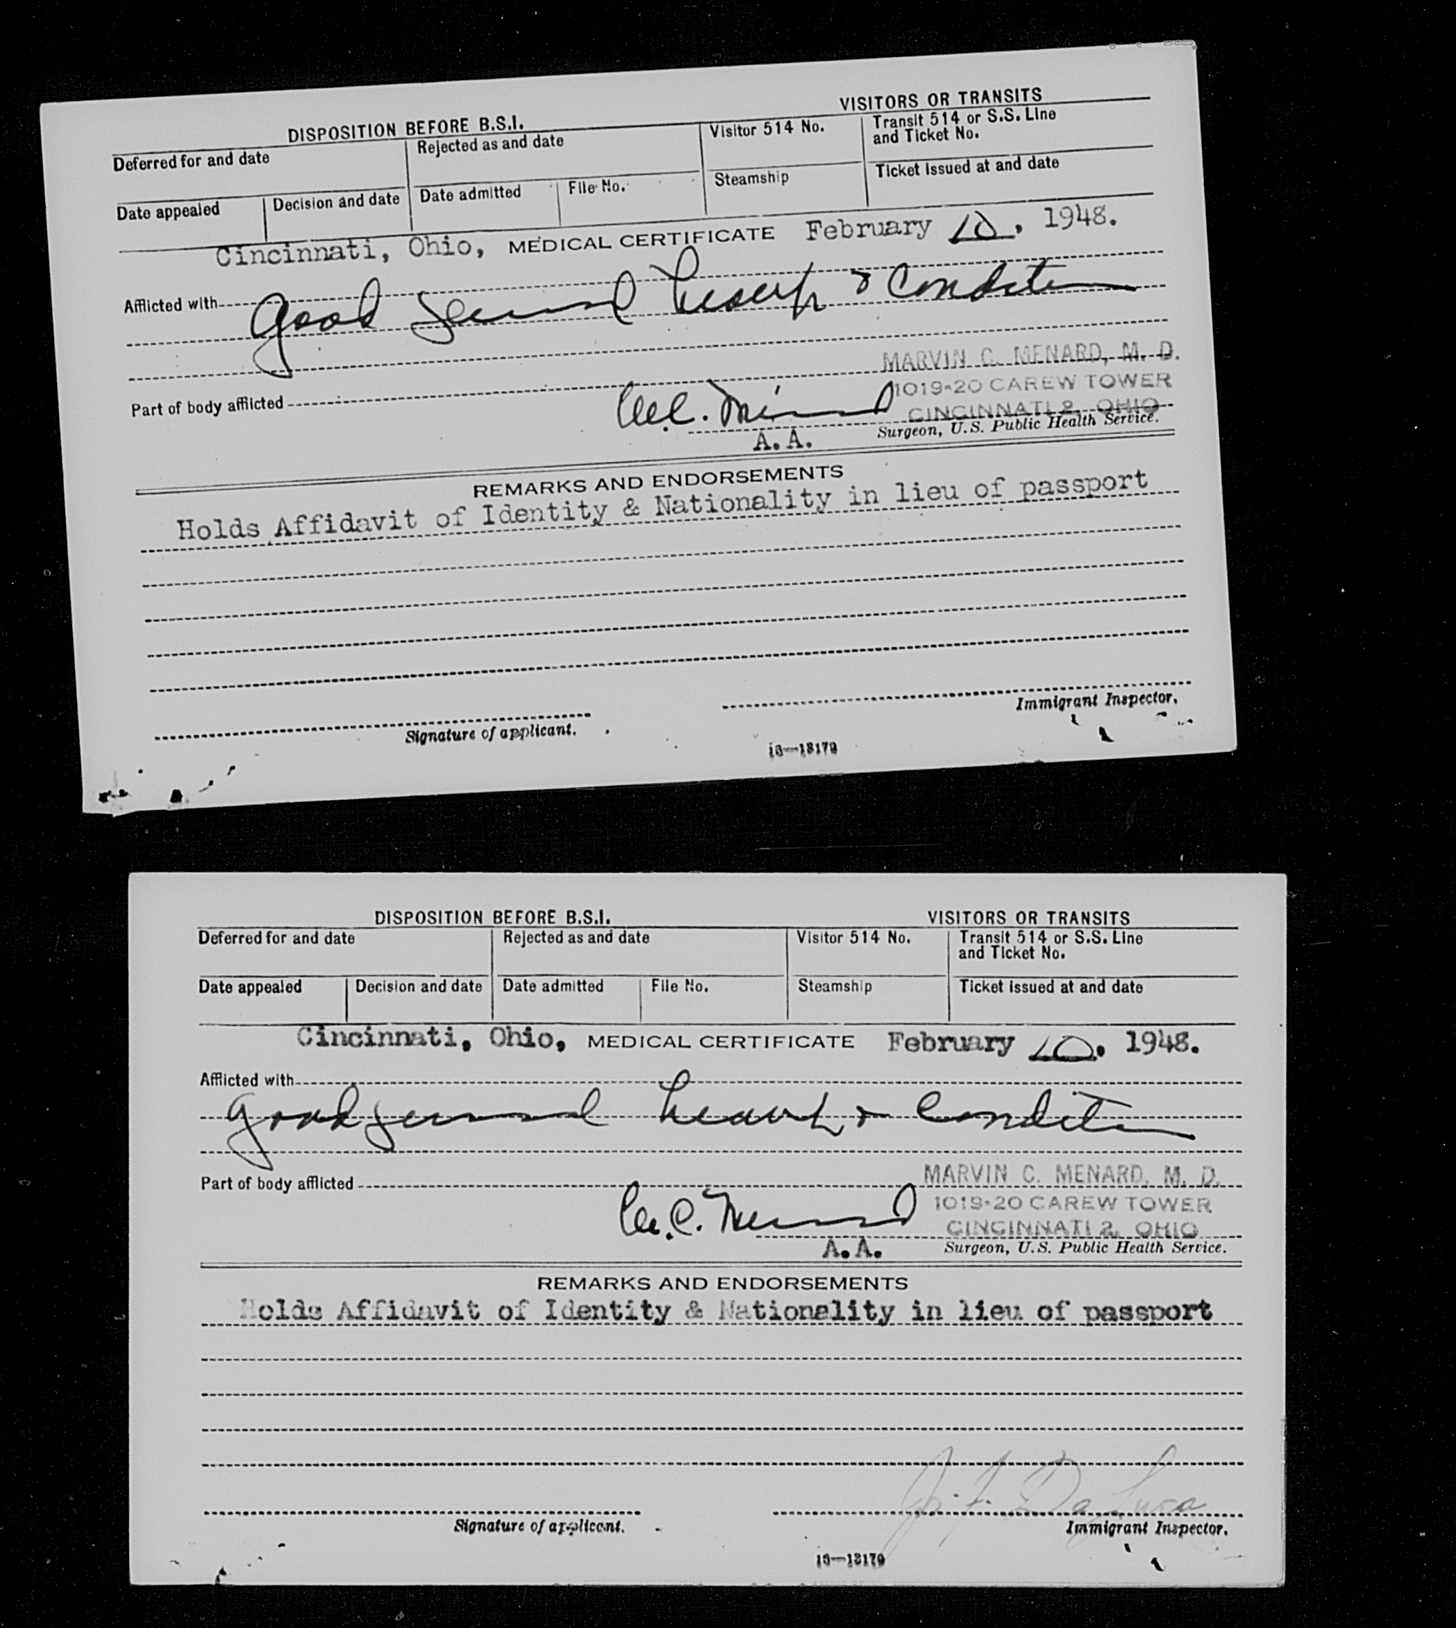 DISPOSITION BEFORE B.S.I.
VISITORS OR TRANSITS
Deferred for and date
Rejected as and date
Visitor 514 No.
Transit 514 or S.S. Line and Ticket No.
Date appealed
Decision and date
Date admitted
File No.
Steamship
Ticket issued at and date
Cincinnati, Ohio, MEDICAL CERTIFICATE February 10, 1948.
Afflicted with
good general health & condition
MARVIN C. MENARD, M. D.
Part of body afflicted
M.C. Menard
1019-20 CAREW TOWER
CINCINNATI 2, OHIO
A.A.
Surgeon, U.S. Public Health Service.
REMARKS AND ENDORSEMENTS
Holds Affidavit of Identity & Nationality in lieu of passport
Immigrant Inspector.
Signature of applicant.
16—13179
DISPOSITION BEFORE B.S.I.
VISITORS OR TRANSITS
Deferred for and date
Rejected as and date
Visitor 514 No.
Transit 514 or S.S. Line
and Ticket No.
Date appealed
Decision and date
Date admitted
File No.
Steamship
Ticket issued at and date
Cincinnati, Ohio, MEDICAL CERTIFICATE February 10, 1948.
Afflicted with
good general health & condition
MARVIN C. MENARD, M. D.
Part of body afflicted
M.C. Menard
1019-20 CAREW TOWER
CINCINNATI 2, OHIO
A.A.
Surgeon, U.S. Public Health Service.
REMARKS AND ENDORSEMENTS
Holds Affidavit of Identity & Nationality in lieu of passport
Signature of applicant.
Immigrant Inspector.
16—13179